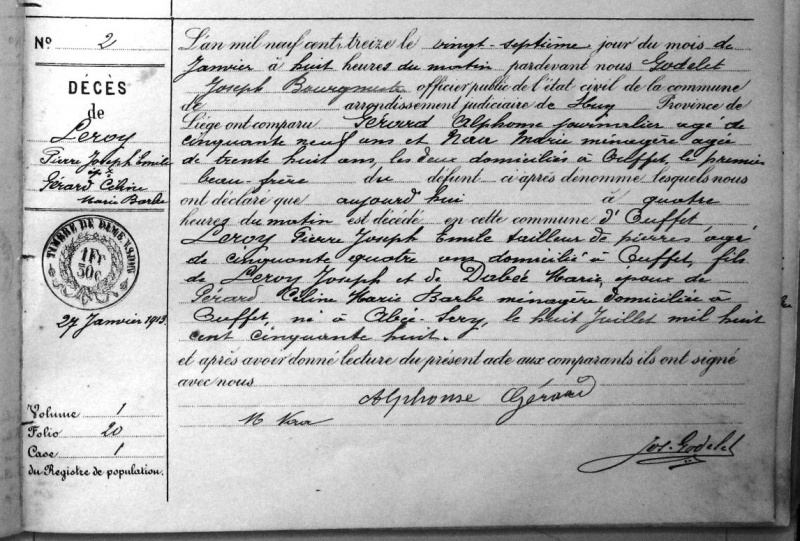 No 2
DÉCÈS
de
Leroy
Pierre Joseph Emile
ép x
Gérard Céline
Marie Barbe
TIMBRE DE DIMENSION
1 Fr
30 c
27 Janvier 1913.
Volume 1
Folio 20
Case 1
du Registre de population.
L'an mil neuf cent treize le vingt-septième jour du mois de
Janvier à huit heures du matin pardevant nous Godelet
Joseph Bourgmestre officier public de l'état civil de la commune
de arrondissement judiciaire de Huy Province de
Liège ont comparu Gérard Alphonse journalier âgé de
cinquante neuf ans et Naa Marie ménagère âgée
de trente huit ans, les deux domiciliés à Ouffet, le premier
beau-frère du défunt ci après dénommé lesquels nous
ont déclaré que aujourd'hui à quatre
heures du matin est décédé en cette commune d'Ouffet,
Leroy Pierre Joseph Emile tailleur de pierres, âgé
de cinquante quatre ans domicilié à Ouffet, fils
de Leroy Joseph et de Dabée Marie, époux de
Gérard Céline Marie Barbe ménagère domiciliée à
Ouffet, né à Abée-Scry, le huit Juillet mil huit
cent cinquante huit.
et après avoir donné lecture du présent acte aux comparants ils ont signé
avec nous
Alphonse Gérard
M Naa
Jos. Godelet